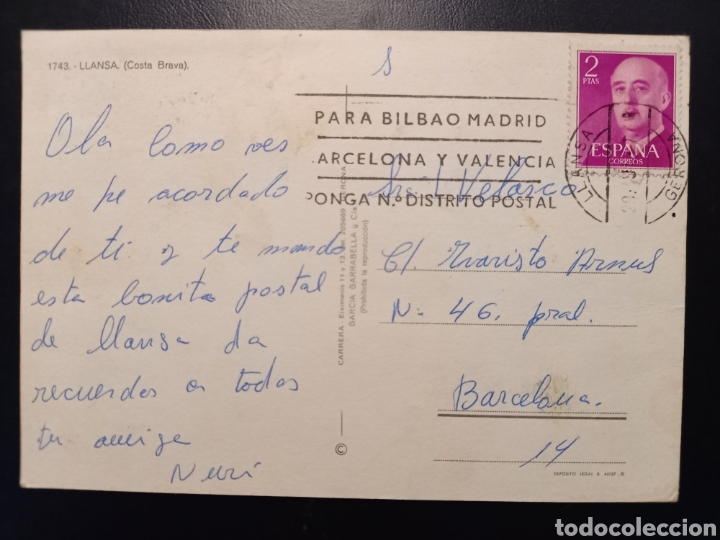 1743. - LLANSA. (Costa Brava).
Ola como ves
me pe acordado
de ti y te mando
esta bonita postal
de llansa da
recuerdos a todos
tu amiga
Nuri
CARRERA
GARCIA GARRABELLA y Cía.
(Prohibida la reproducción)
©
S
PARA BILBAO MADRID
ARCELONA Y VALENCIA
PONGA N.º DISTRITO POSTAL
2
PTAS
ESPAÑA
CORREOS
LLANSA
GERONA
Velasco
C/. Evaristo Arnus
Nº 46, pral.
Barcelona.
14
DEPOSITO LEGAL B.
todocoleccion